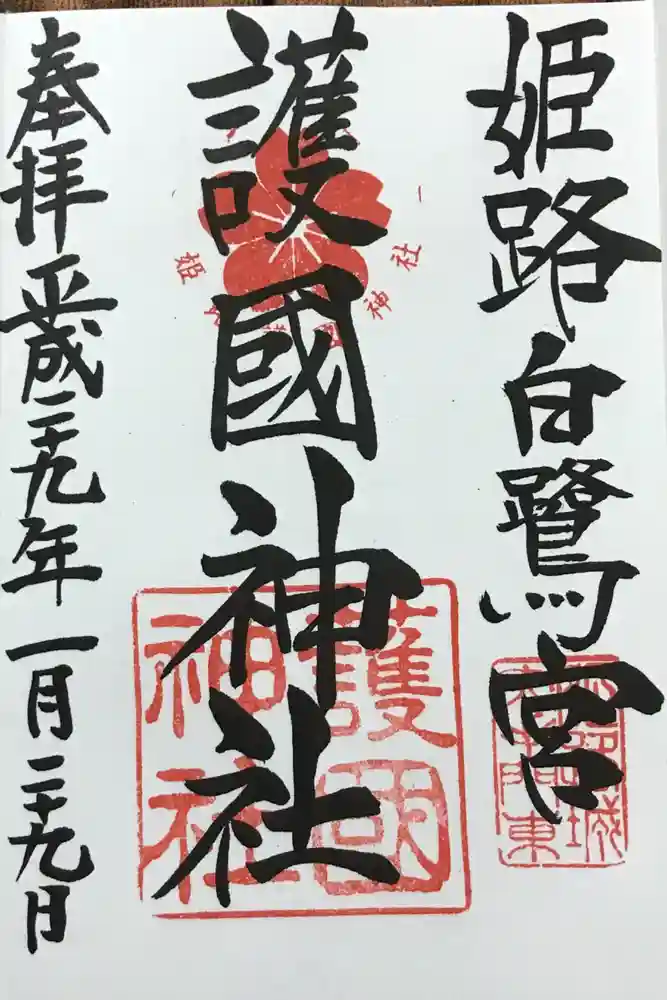 姫路白鷺宮
護國神社
奉拝 平成二十九年 一月二十九日
護國
神社
姫路城
大手門東